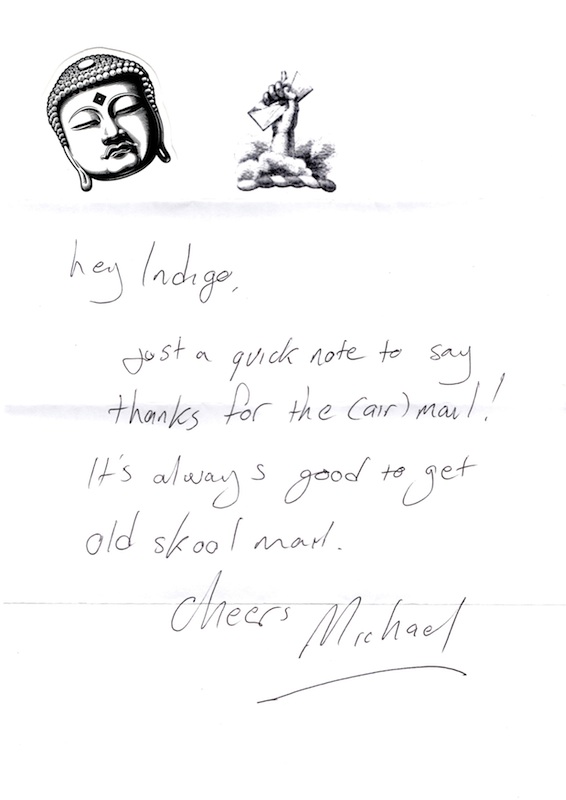 hey Indigo,
just a quick note to say
thanks for the (air) mail!
It's always good to get
old skool mail.
cheers Michael